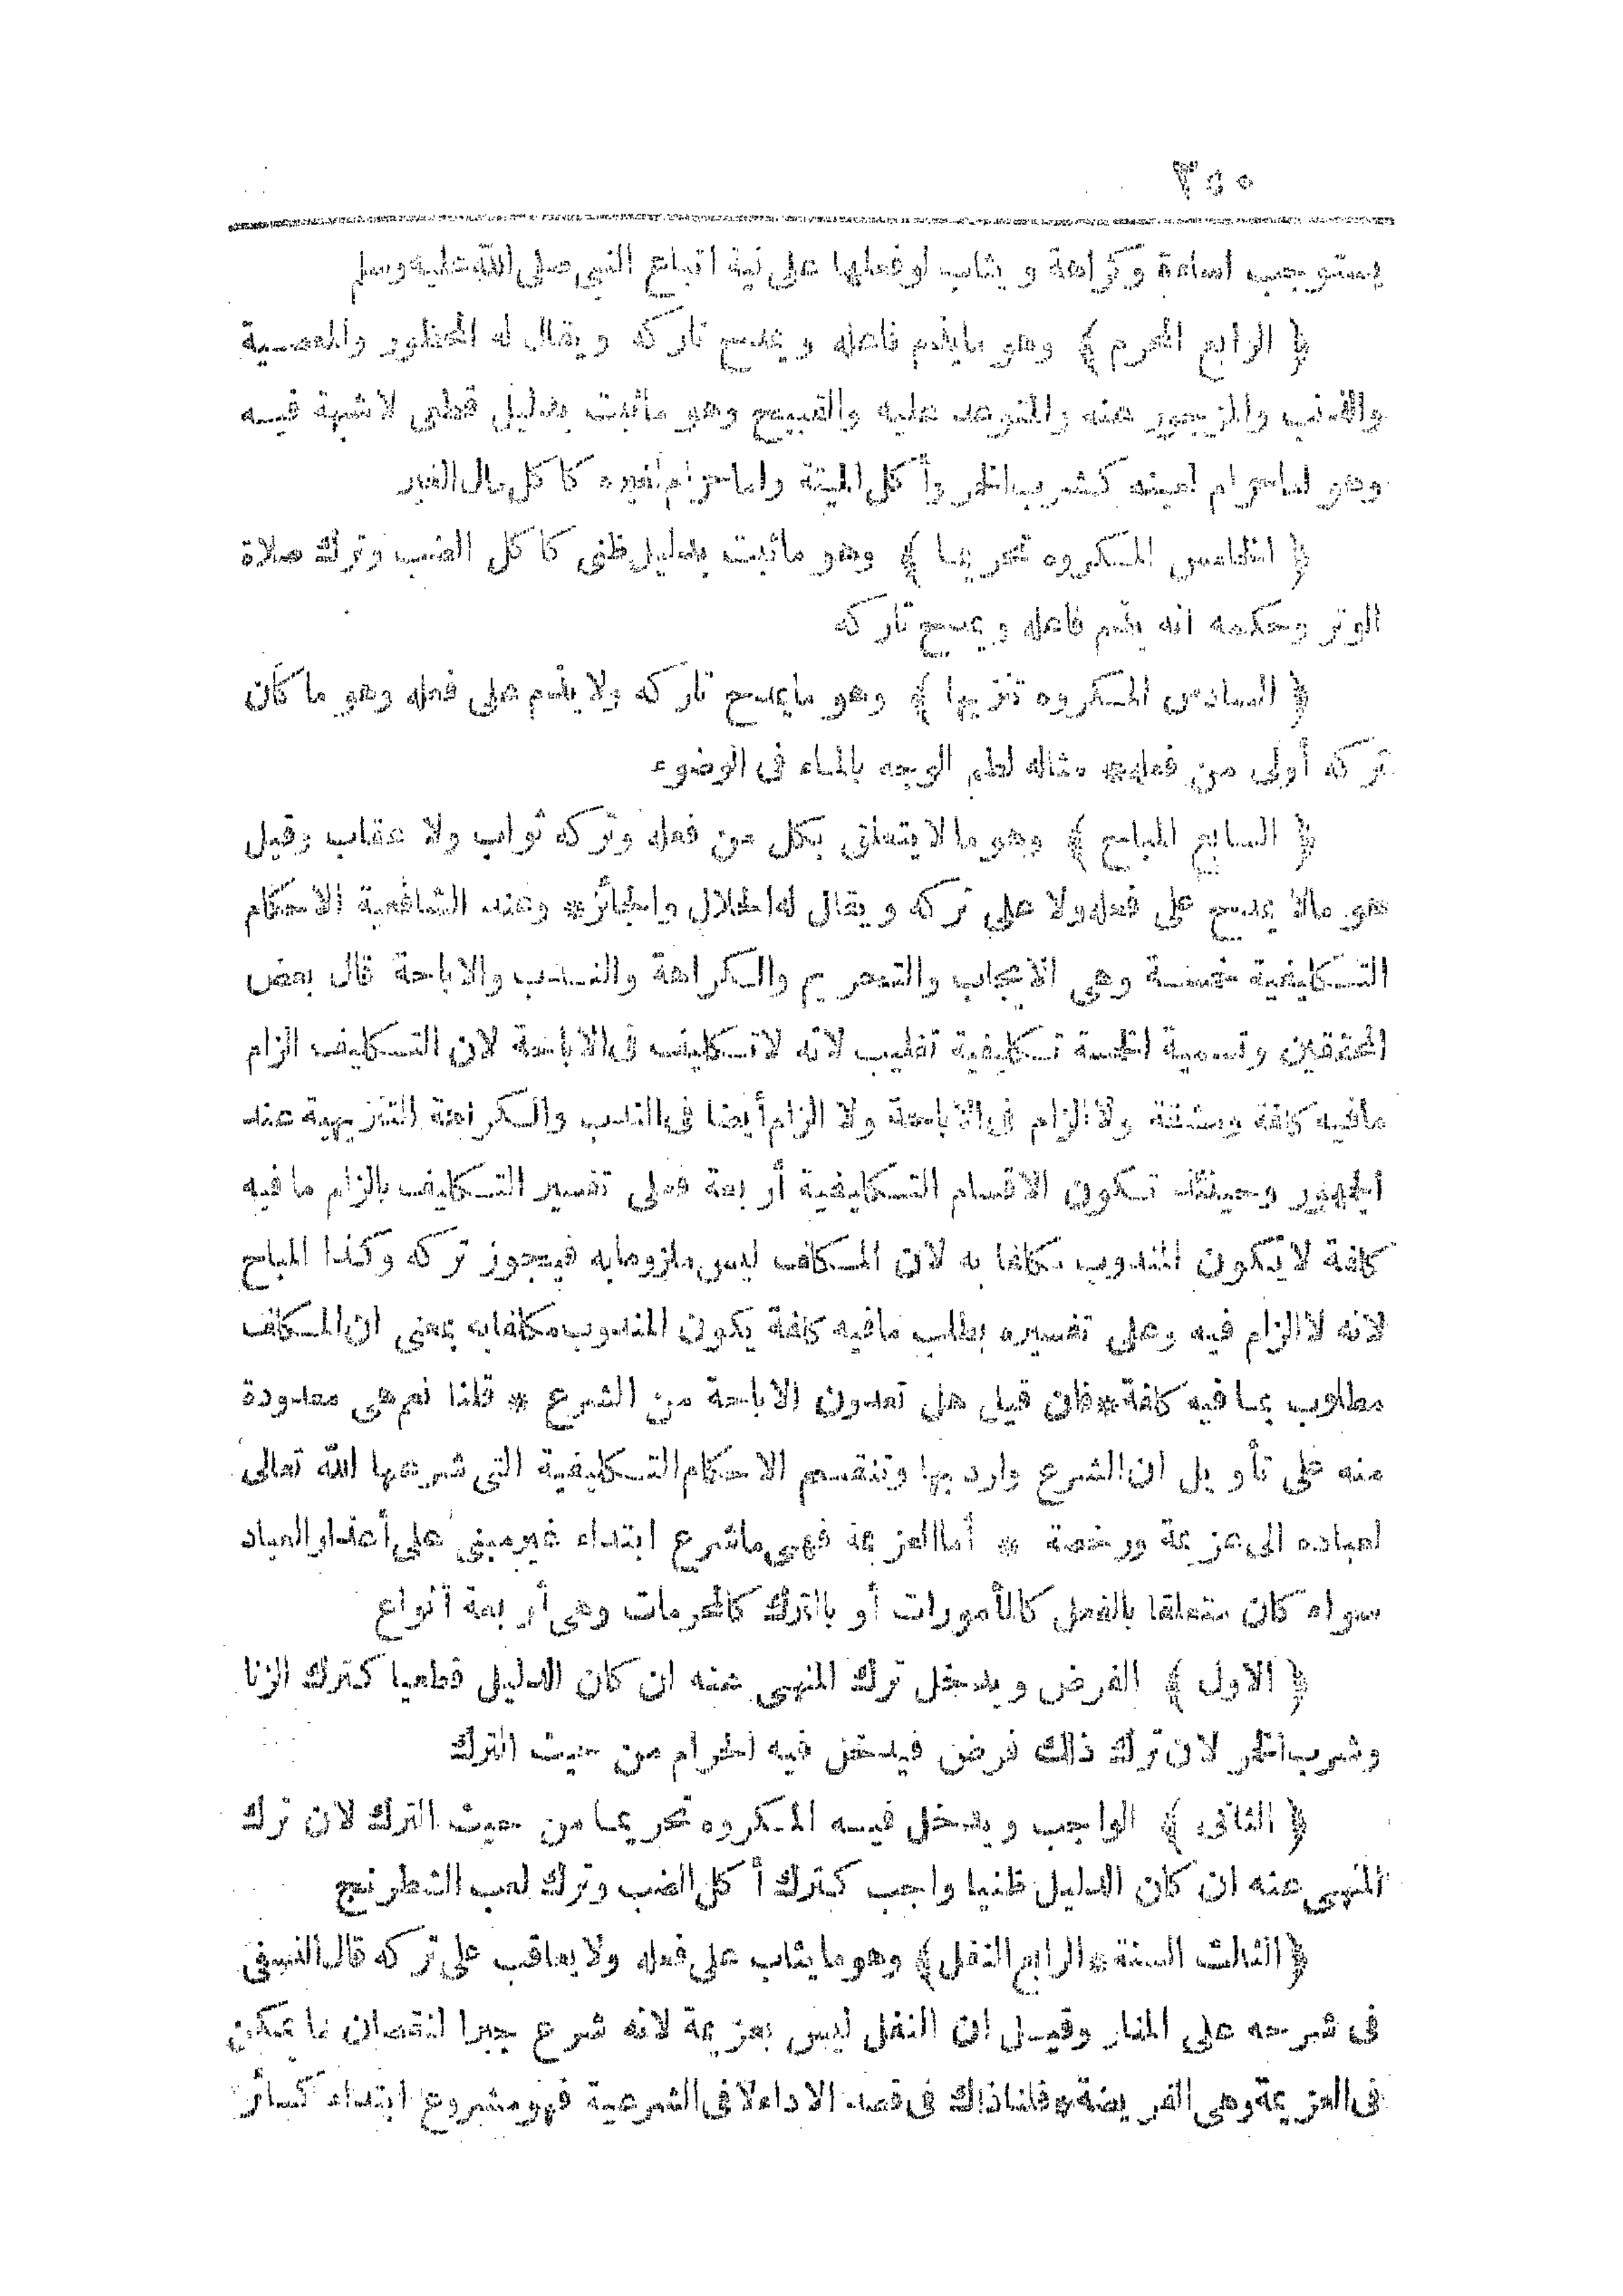 ٢٥٠
يستوجب اساءة وكراهة و يثاب لو فعلها على نية اتباع النبي صلى الله عليه وسلم
﴿ الرابع المحرم ﴾ وهو ما يذم فاعله و يمدح تاركه و يقال له المحظور والمعصية
والذنب والمزجور عنه والمتوعد عليه والقبيح وهو ماثبت بدليل قطعى لاشبهة فيه
وهو اما حرام لعينه كشرب الخمر وأكل الميتة واما حرام لغيره كاكل مال الغير
﴿ الخامس المكروه تحريما ﴾ وهو ماثبت بدليل ظنى كاكل الضب وترك صلاة
الوتر وحكمه انه يذم فاعله و يمدح تاركه
﴿ السادس المكروه تنزيها ﴾ وهو مايمدح تاركه ولا يذم على فعله وهو ما كان
تركه أولى من فعله * مثاله لطم الوجه بالماء فى الوضوء
﴿ السابع المباح ﴾ وهو ما لا يتعلق بكل من فعله وتركه ثواب ولا عقاب وقيل
هو مالا يمدح على فعله ولا على تركه و يقال له الحلال والجائز * وعند الشافعية الاحكام
التكليفية خمسة وهى الايجاب والتحريم والكراهة والندب والاباحة قال بعض
المحققين وتسمية الخمسة تكليفية تغليب لانه لا تكليف فى الاباحة لان التكليف الزام
مافيه كلفة ومشقة ولا الزام فى الاباحة ولا الزام أيضا فى الندب والكراهة التنزيهية عند
الجمهور وحينئذ تكون الاقسام التكليفية أربعة فعلى تفسير التكليف بالزام ما فيه
كلفة لا يكون المندوب مكلفا به لان المكلف ليس ملزوما به فيجوز تركه وكذا المباح
لانه لا الزام فيه وعلى تفسيره بطلب مافيه كلفة يكون المندوب مكلفا به بمعنى ان المكلف
مطلوب بما فيه كلفة * فان قيل هل تعدون الاباحة من الشرع * قلنا نعم هى معدودة
منه على تأويل ان الشرع وارد بها وتنقسم الاحكام التكليفية التى شرعها الله تعالى
لعباده الى عزيمة ورخصة * أما العزيمة فهى ماشرع ابتداء غير مبنى على أعذار العباد
سواء كان متعلقا بالفعل كالمأمورات أو بالترك كالمحرمات وهى أربعة أنواع
﴿ الاول ﴾ الفرض و يدخل ترك المنهى عنه ان كان الدليل قطعيا كترك الزنا
وشرب الخمر لان ترك ذلك فرض فيدخل فيه الحرام من حيث الترك
﴿ الثانى ﴾ الواجب و يدخل فيه المكروه تحريما من حيث الترك لان ترك
المنهى عنه ان كان الدليل ظنيا واجب كترك أكل الضب وترك لعب الشطرنج
﴿ الثالث السنة * الرابع النفل ﴾ وهو ما يثاب على فعله ولا يعاقب على تركه قال النسفى
فى شرحه على المنار وقيل ان النفل ليس بعزيمة لانه شرع جبرا لنقصان ما تمكن
فى العزيمة وهى الفريضة * قلنا ذاك فى قصد الاداء لا فى الشرعية فهو مشروع ابتداء كسائر